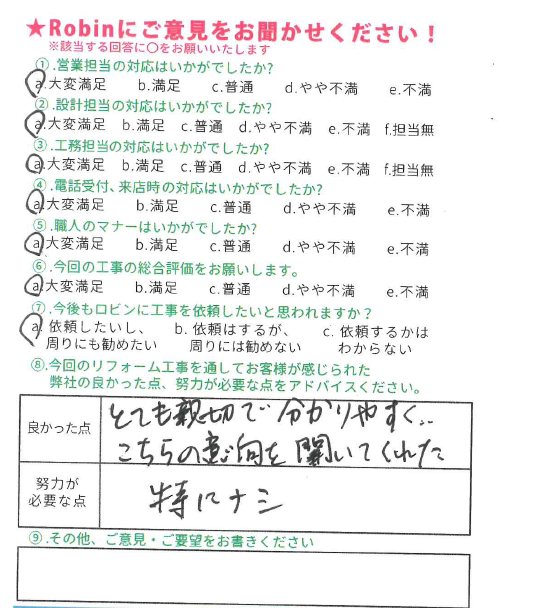 ★Robinにご意見をお聞かせください！
※該当する回答に〇をお願いいたします
①.営業担当の対応はいかがでしたか?
a.大変満足 b.満足 c.普通 d.やや不満 e.不満
②.設計担当の対応はいかがでしたか?
a.大変満足 b.満足 c.普通 d.やや不満 e.不満 f.担当無
③.工務担当の対応はいかがでしたか?
a.大変満足 b.満足 c.普通 d.やや不満 e.不満 f.担当無
④.電話受付、来店時の対応はいかがでしたか?
a.大変満足 b.満足 c.普通 d.やや不満 e.不満
⑤.職人のマナーはいかがでしたか?
a.大変満足 b.満足 c.普通 d.やや不満 e.不満
⑥.今回の工事の総合評価をお願いします。
a.大変満足 b.満足 c.普通 d.やや不満 e.不満
⑦.今後もロビンに工事を依頼したいと思われますか？
a. 依頼したいし、 b. 依頼はするが、 c. 依頼するかは
周りにも勧めたい 周りには勧めない わからない
⑧.今回のリフォーム工事を通してお客様が感じられた
弊社の良かった点、努力が必要な点をアドバイスください。
良かった点
とても親切で分かりやすく..
こちらの意向を聞いてくれた
努力が
必要な点
特にナシ
⑨.その他、ご意見・ご要望をお書きください